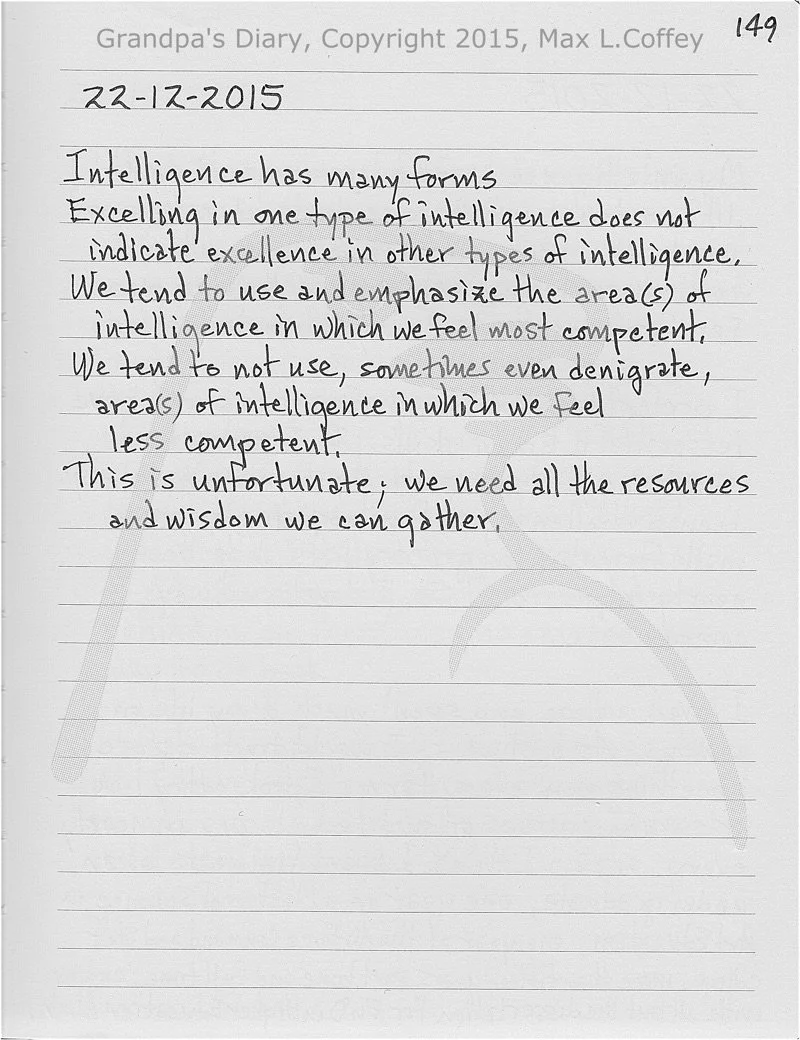 149
Grandpa's Diary, Copyright 2015, Max L.Coffey
22-12-2015
Intelligence has many forms
Excelling in one type of intelligence does not
indicate excellence in other types of intelligence.
We tend to use and emphasize the area(s) of
intelligence in which we feel most competent.
We tend to not use, sometimes even denigrate,
area(s) of intelligence in which we feel
less competent.
This is unfortunate; we need all the resources
and wisdom we can gather.